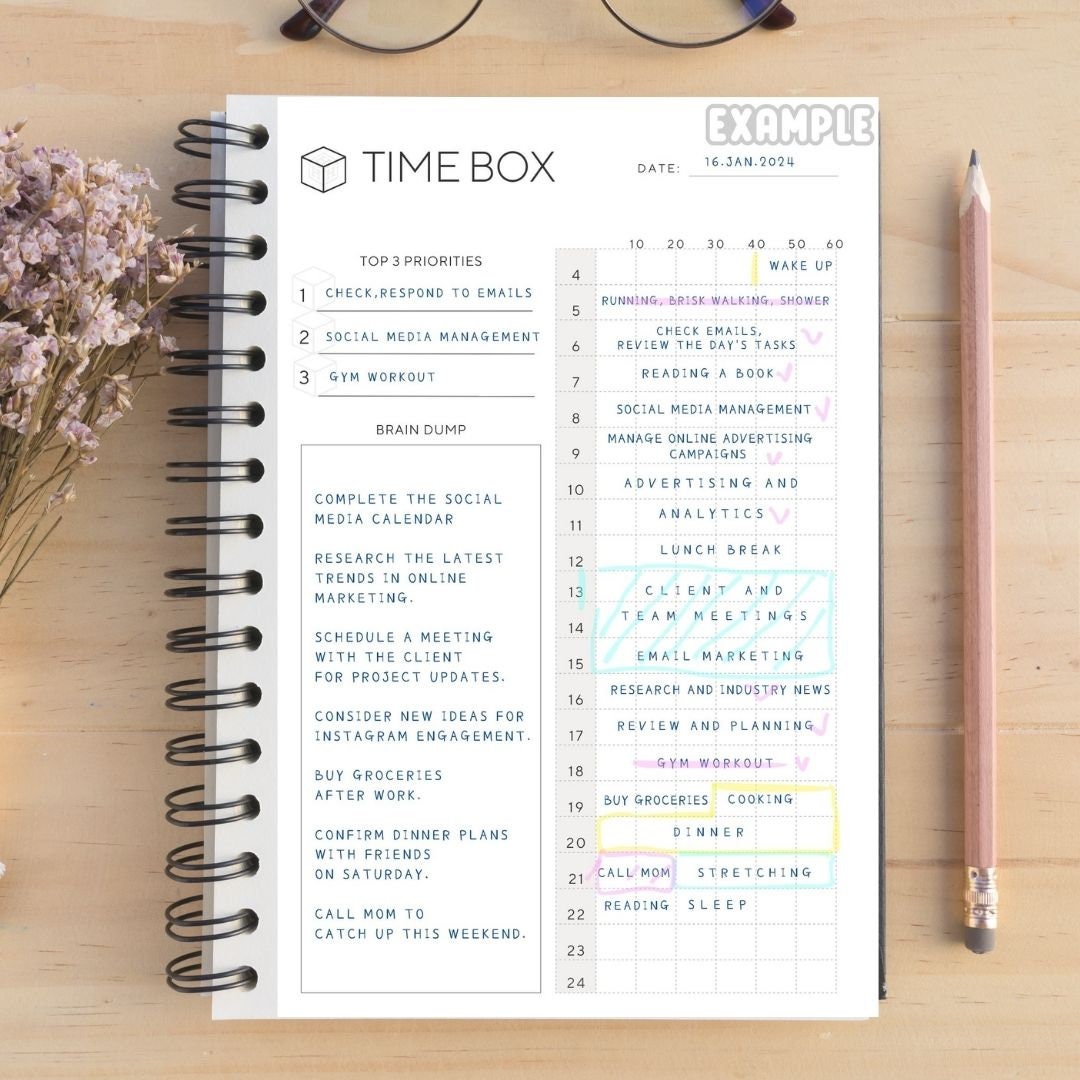 EXAMPLE
TIME BOX
DATE: 16.JAN.2024
TOP 3 PRIORITIES
1 CHECK,RESPOND TO EMAILS
2 SOCIAL MEDIA MANAGEMENT
3 GYM WORKOUT
BRAIN DUMP
COMPLETE THE SOCIAL
MEDIA CALENDAR
RESEARCH THE LATEST
TRENDS IN ONLINE
MARKETING.
SCHEDULE A MEETING
WITH THE CLIENT
FOR PROJECT UPDATES.
CONSIDER NEW IDEAS FOR
INSTAGRAM ENGAGEMENT.
BUY GROCERIES
AFTER WORK.
CONFIRM DINNER PLANS
WITH FRIENDS
ON SATURDAY.
CALL MOM TO
CATCH UP THIS WEEKEND.
10 20 30 40 50 60
4 WAKE UP
5 RUNNING, BRISK WALKING, SHOWER
CHECK EMAILS,
6 REVIEW THE DAY'S TASKS
7 READING A BOOK
8 SOCIAL MEDIA MANAGEMENT
MANAGE ONLINE ADVERTISING
9 CAMPAIGNS
10 ADVERTISING AND
11 ANALYTICS
12 LUNCH BREAK
13 CLIENT AND
14 TEAM MEETINGS
15 EMAIL MARKETING
16 RESEARCH AND INDUSTRY NEWS
17 REVIEW AND PLANNING
18 GYM WORKOUT
19 BUY GROCERIES COOKING
20 DINNER
21 CALL MOM STRETCHING
22 READING SLEEP
23
24